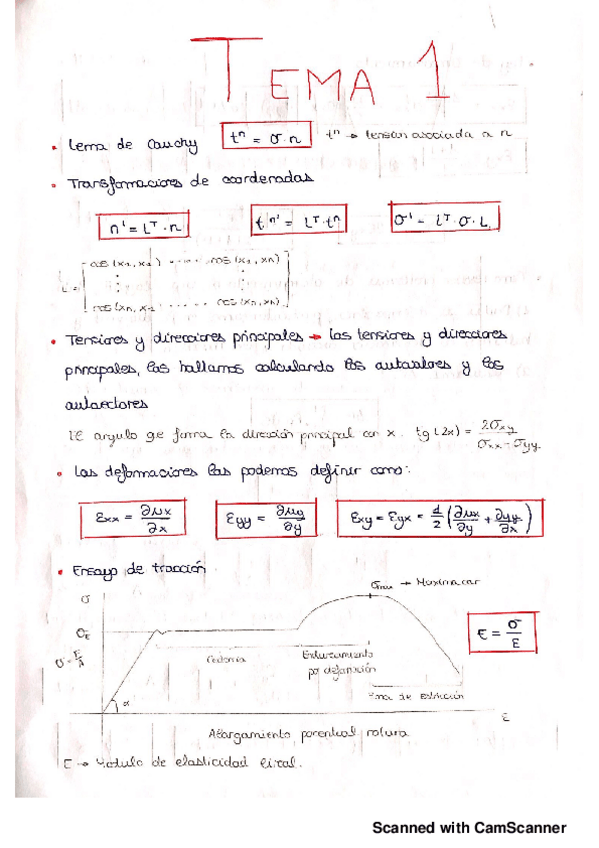 TEMA 1
• Lema de Cauchy tⁿ = σ·n tⁿ → tensión asociada a n
• Transformaciones de coordenadas
n' = Lᵀ·n t'ⁿ' = Lᵀ·tⁿ σ' = Lᵀ·σ·L
L = [cos(x₁,x₁) ..... cos(x₁,xn)
cos(xn,x₁) ..... cos(xn,xn)]
• Tensiones y direcciones principales → las tensiones y direcciones
principales, las hallamos calculando los autovalores y los
autovectores
El angulo qe forma la dirección principal con x. tg(2α) = 2σxy / σxx - σyy
• Las deformaciones las podemos definir como:
εxx = ∂ux/∂x εyy = ∂uy/∂y εxy = εyx = 1/2 (∂ux/∂y + ∂uy/∂x)
• Ensayo de tracción
σmax → Maxima car
σ
σE
σ = F/A
Cedencia
Endurecimiento
por deformación
Zona de estricción
α
ε
ε = σ/E
Alargamiento porcentual rotura
E → Modulo de elasticidad lineal.
Scanned with CamScanner